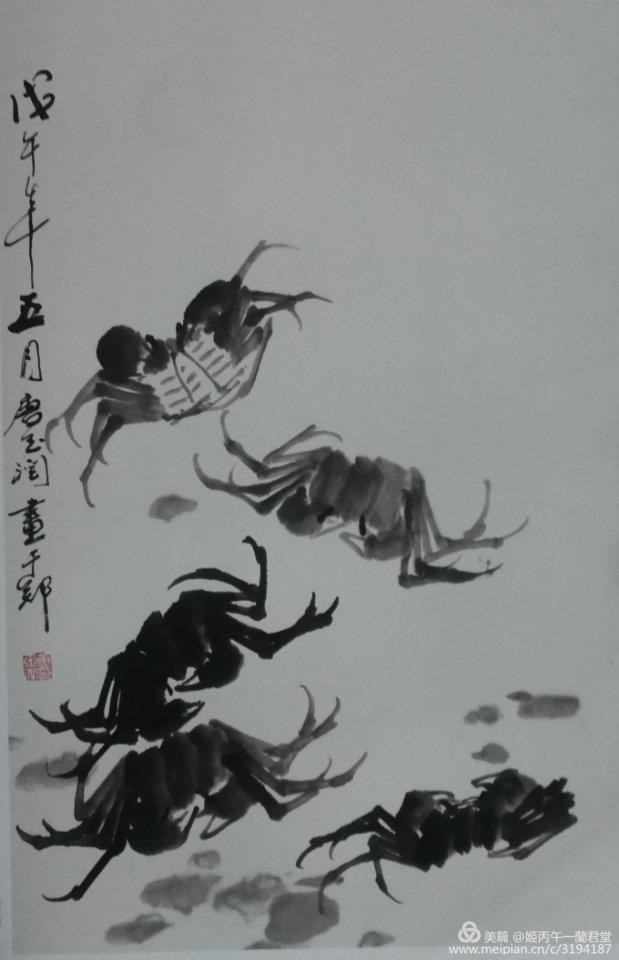 戊午年五月唐玉润畫于郑
美篇 @姬丙午一蘭君堂
www.meipian.cn/c/3194187